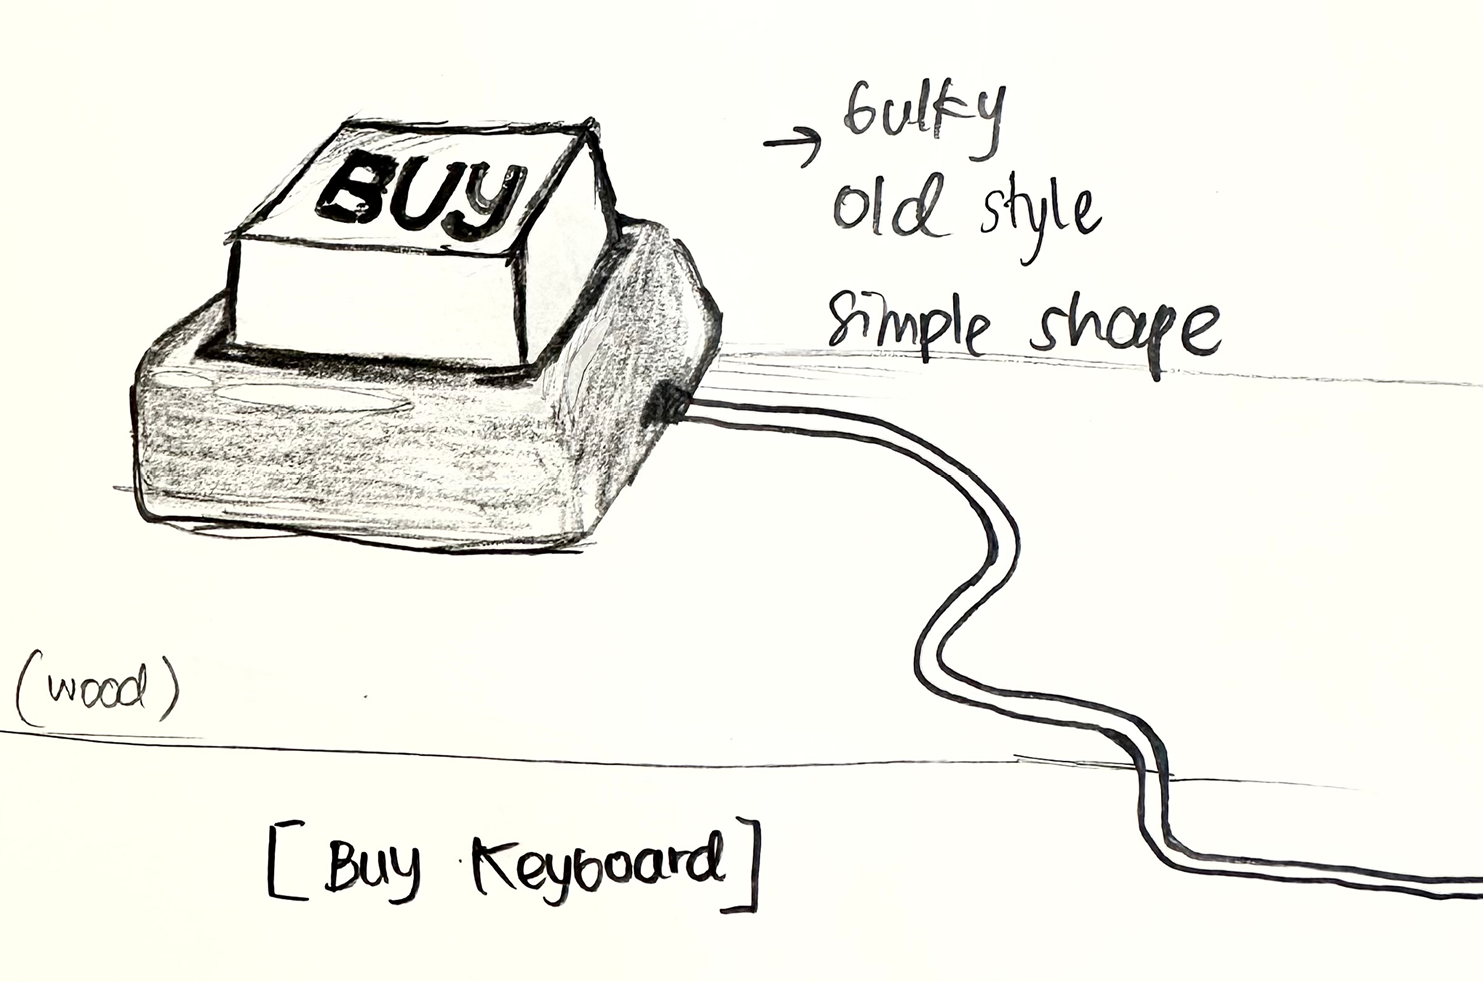 BUY
→ bulky
old style
simple shape
(wood)
[Buy Keyboard]